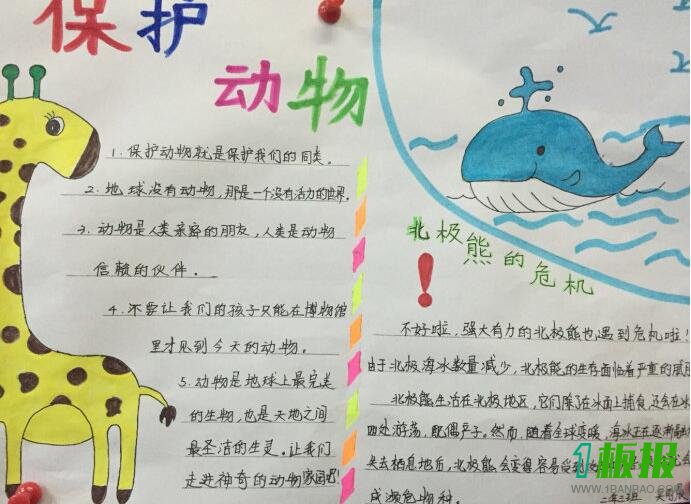 保护
动物
1.保护动物就是保护我们的同类。
2.地球没有动物,那是一个没有活力的世界。
3.动物是人类亲密的朋友,人类是动物
信赖的伙伴。
4.不要让我们的孩子只能在博物馆
里才见到今天的动物。
5.动物是地球上最完美
的生物,也是天地之间
最圣洁的生灵。让我们
走进神奇的动物家园吧!
北极熊的危机
!
不好啦,强大有力的北极熊也遇到危机啦!
由于北极海冰数量减少,北极熊的生存面临着严重的威胁
北极熊生活在北极地区,它们除了在冰面上捕食,还会在冰
四处游荡,配偶产子。然而,随着全球变暖,海冰正在逐渐融
失去栖息地后,北极熊会变得容易受
成濒危物种。
1板报
WWW.1BANBAO.COM